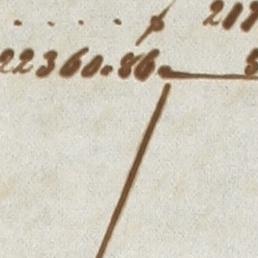 . . . . 217
22360.86.